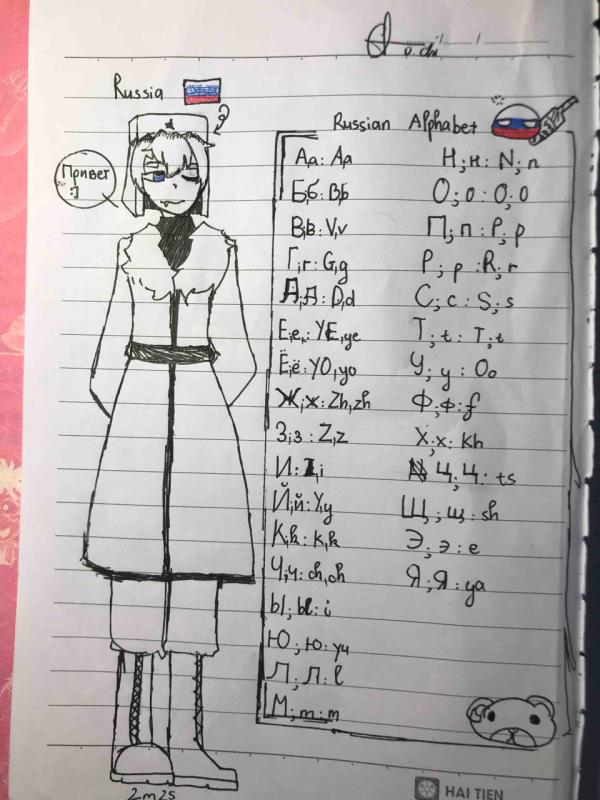 Russia
Привет
:]
2m25
Russian Alphabet
Аа: Aa
Б;б: B;b
В;в: V,v
Г;г: G,g
Д,Д: D,d
Е;е: YE,ye
Ё;ё: YO,yo
Ж;ж: Zh,zh
З;з: Z,z
И: I,i
Й;й: Y,y
К;k: k,k
Ч;ч: ch,ch
Ы; ы: i
Ю; ю: yu
Л; Л: l
М; m: m
Н;н: N;n
О; о: O;o
П; п: P; p
Р; р: R; r
С; с: S; s
Т; t: T; t
У; у: Oo
Ф; ф: f
Х; х: Kh
Ц; Ц: ts
Щ; щ: sh
Э; э: e
Я; Я: ya
HAI TIEN